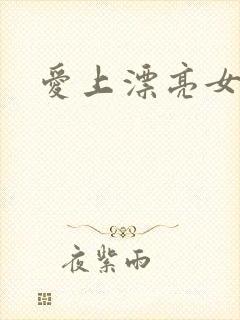 愛上漂亮女
夜紫雨